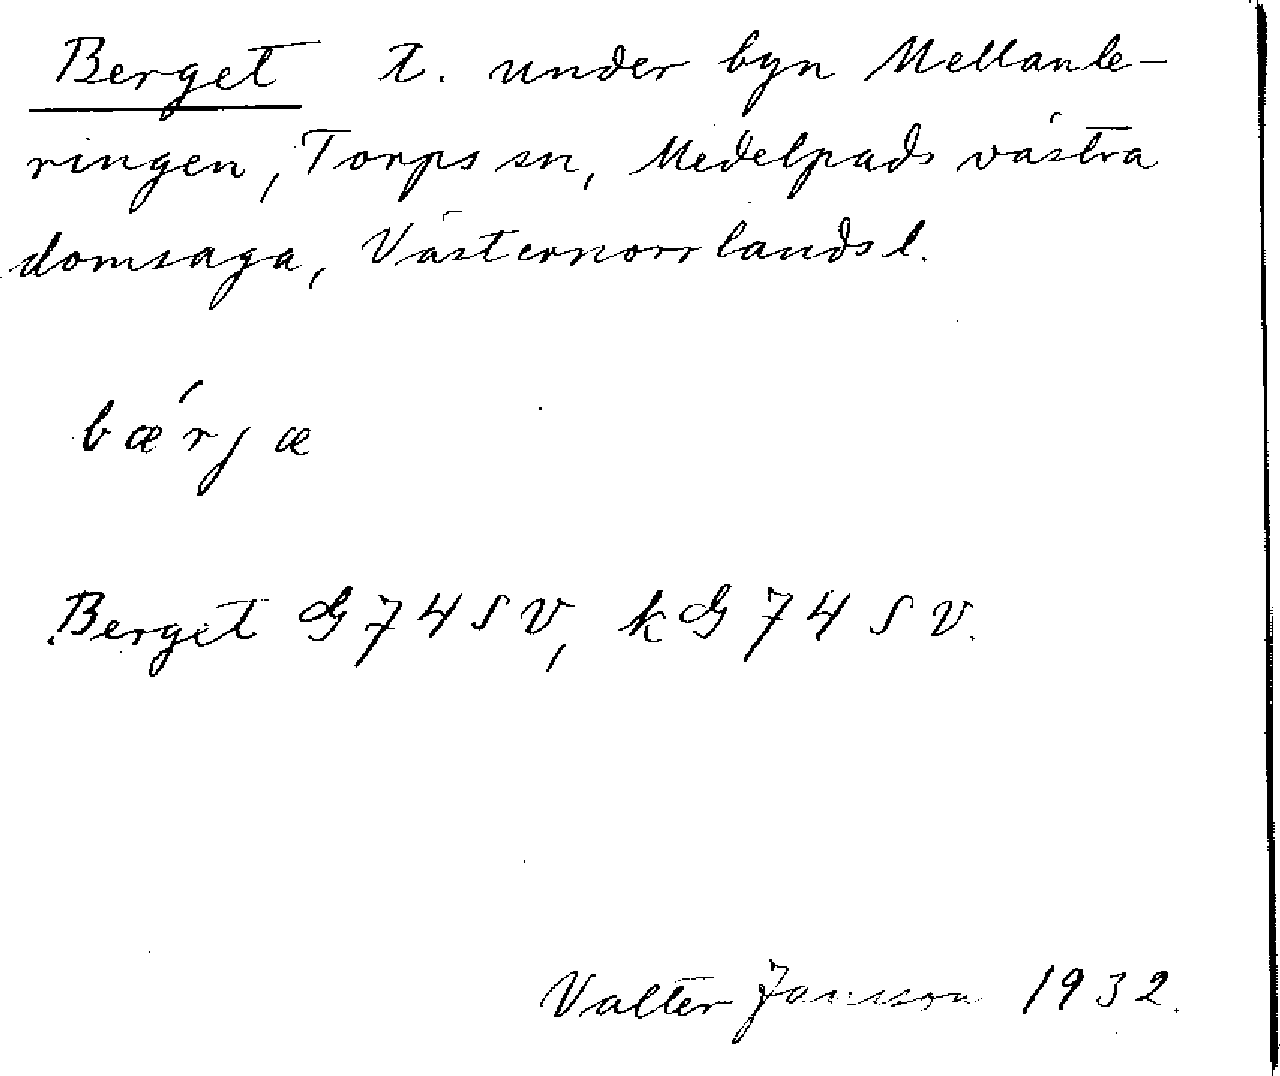 Berget t. under byn Mellanle-
ringen, Torps sn, Medelpads västra
domsaga, Västernorrlands l.
bæ´rjæ
Berget G 74 SV, kG 74 SV.
Valter Jansson 1932.